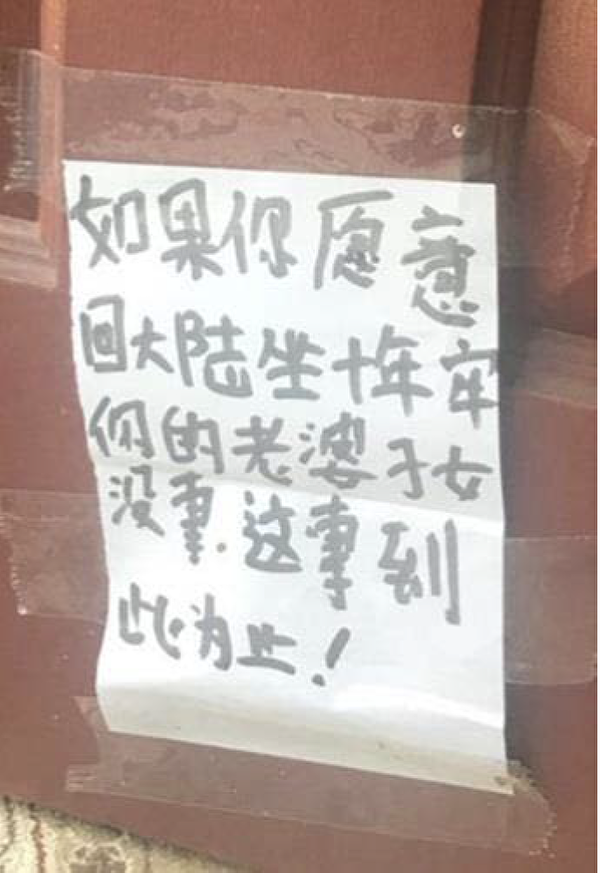 如果你愿意
回大陆坐十年牢
你的老婆子女
没事.这事到
此为止!